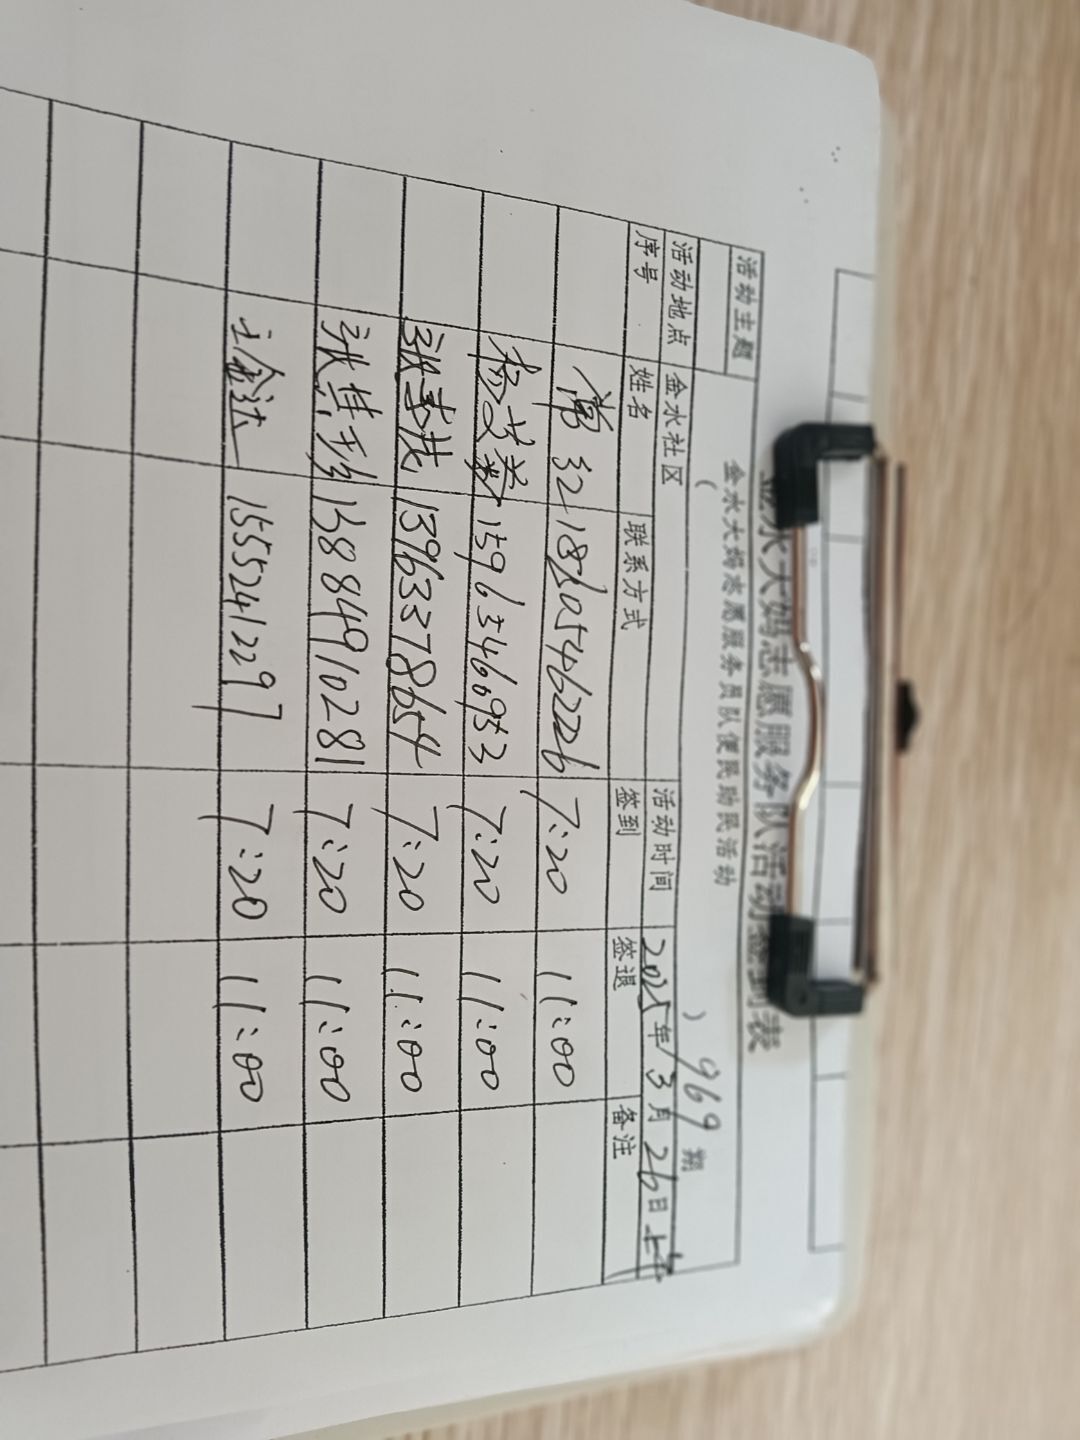 金水大妈志愿服务队活动签到表
活动主题 金水大妈志愿服务员队便民助民活动
( ) 969期
活动地点 金水社区 活动时间 2025年3月26日上午
序号 姓名 联系方式 签到 签退 备注
18305462226 7:20 11:00
杨 15963546953 7:20 11:00
张 13963378654 7:20 11:00
张 158884910281 7:20 11:00
15552411229 7:20 11:00